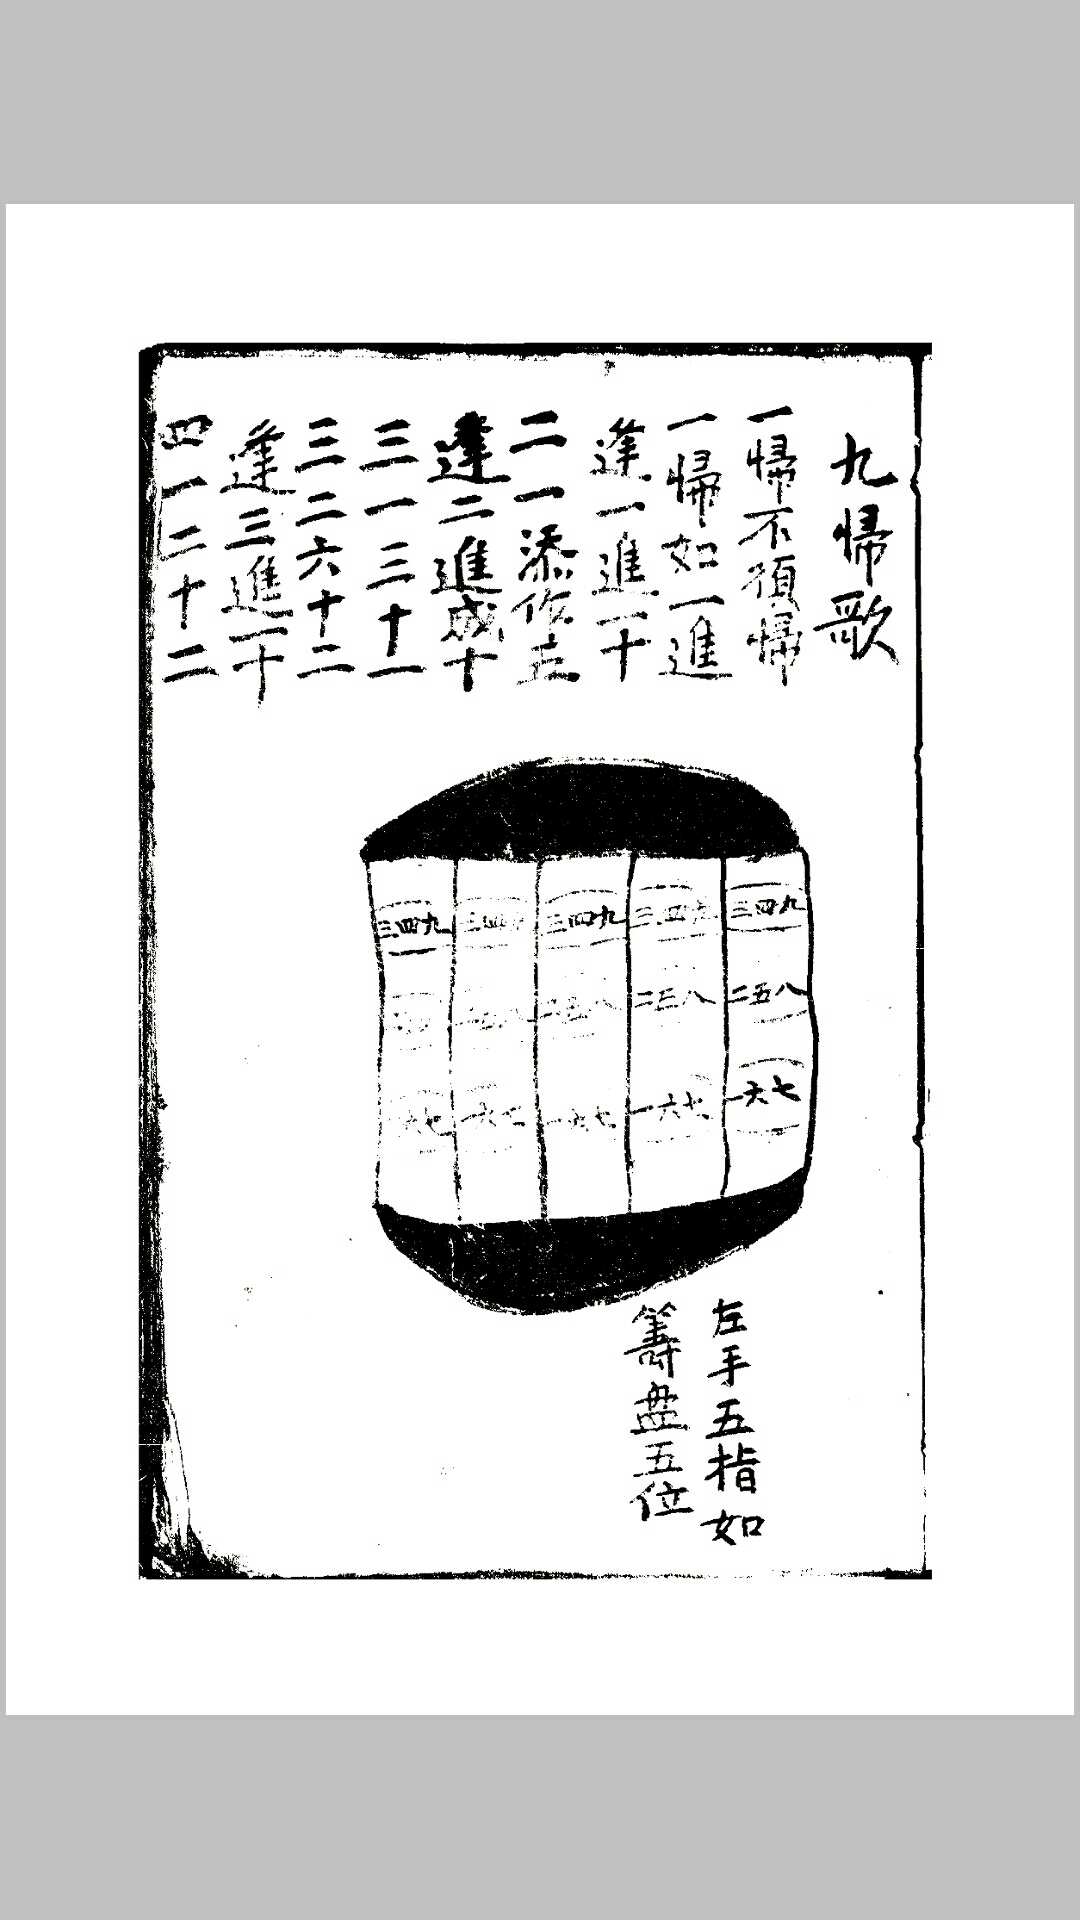 九帰歌
一帰不須帰
一帰如一進
逢一進一十
二一添作五
逢二進成十
三一三十一
三二六十二
逢三進一十
四一二十二
三四九
二五八
一六七
三四九
二三八
一六七
三四九
二五八
一六七
三四九
二五八
一六七
三四九
六七
左手五指如
籌盘五位